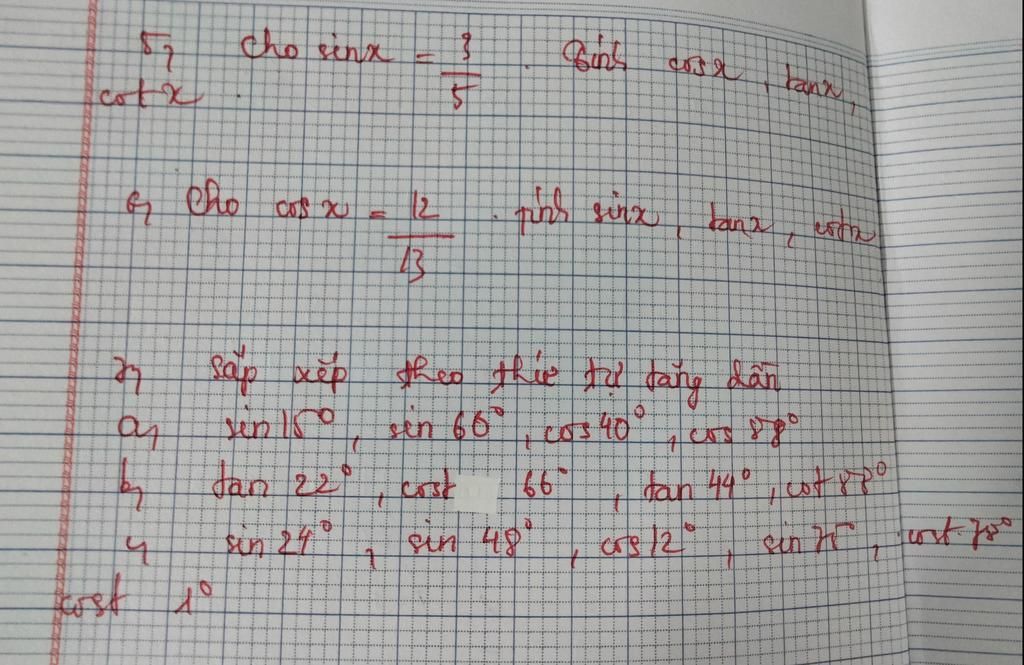 5, Cho sinx = 3/5 . Tính cosx, tanx,
cotx.
6, Cho cosx = 12/13 . tính sinx, tanx, cotx
7, sắp xếp theo thứ tự tăng dần
a, sin15°, sin 66°, cos40°, cos 88°
b, tan 22°, cost 66°, tan 44°, cot 88°
c, sin 24°, sin 48°, cos12°, sin 75°, cost 78°
cost 1°